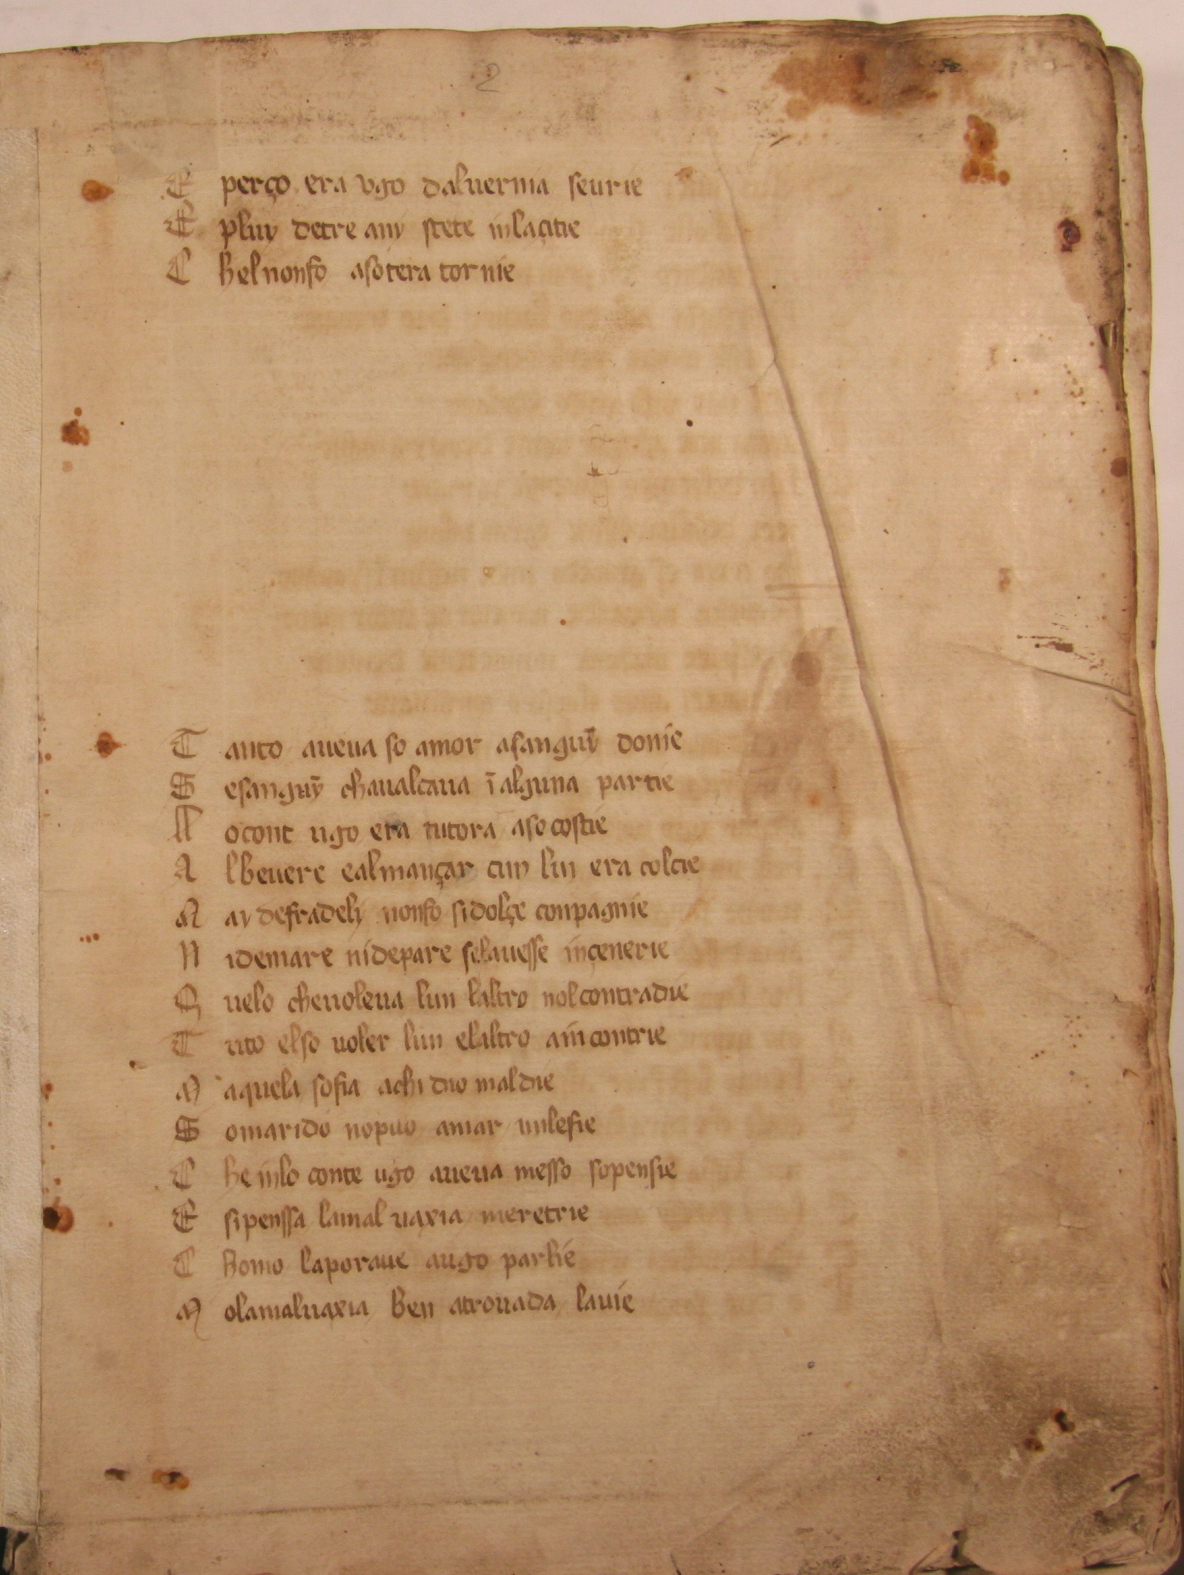 2
E perço era vgo daluernia seurie
E pluy detre any stete inlacitie
C helnonfo asotera tornie
T anto aueua so amor asanguȳ donie
S esanguȳ chaualcaua ī alguna partie
A ocont ugo era tutora aso costie
A lbeuere ealmançar cun luy era colcie
N ay defradely nonfo sidolçe conpagnie
N idemare nidepare selauesse inçenerie
Q uelo cheuoleua lun laltro nolcontradie
T uto elso uoler lun elaltro aīn contrie
M aquela sofia achi dio maldie
S omarido nopuo amar unlesie
C he inlo conte ugo aueua messo sopensie
E sipenssa lamal uaxia meretrie
C homo laporaue augo parlie
M olamaluaxia ben atrouada lauie